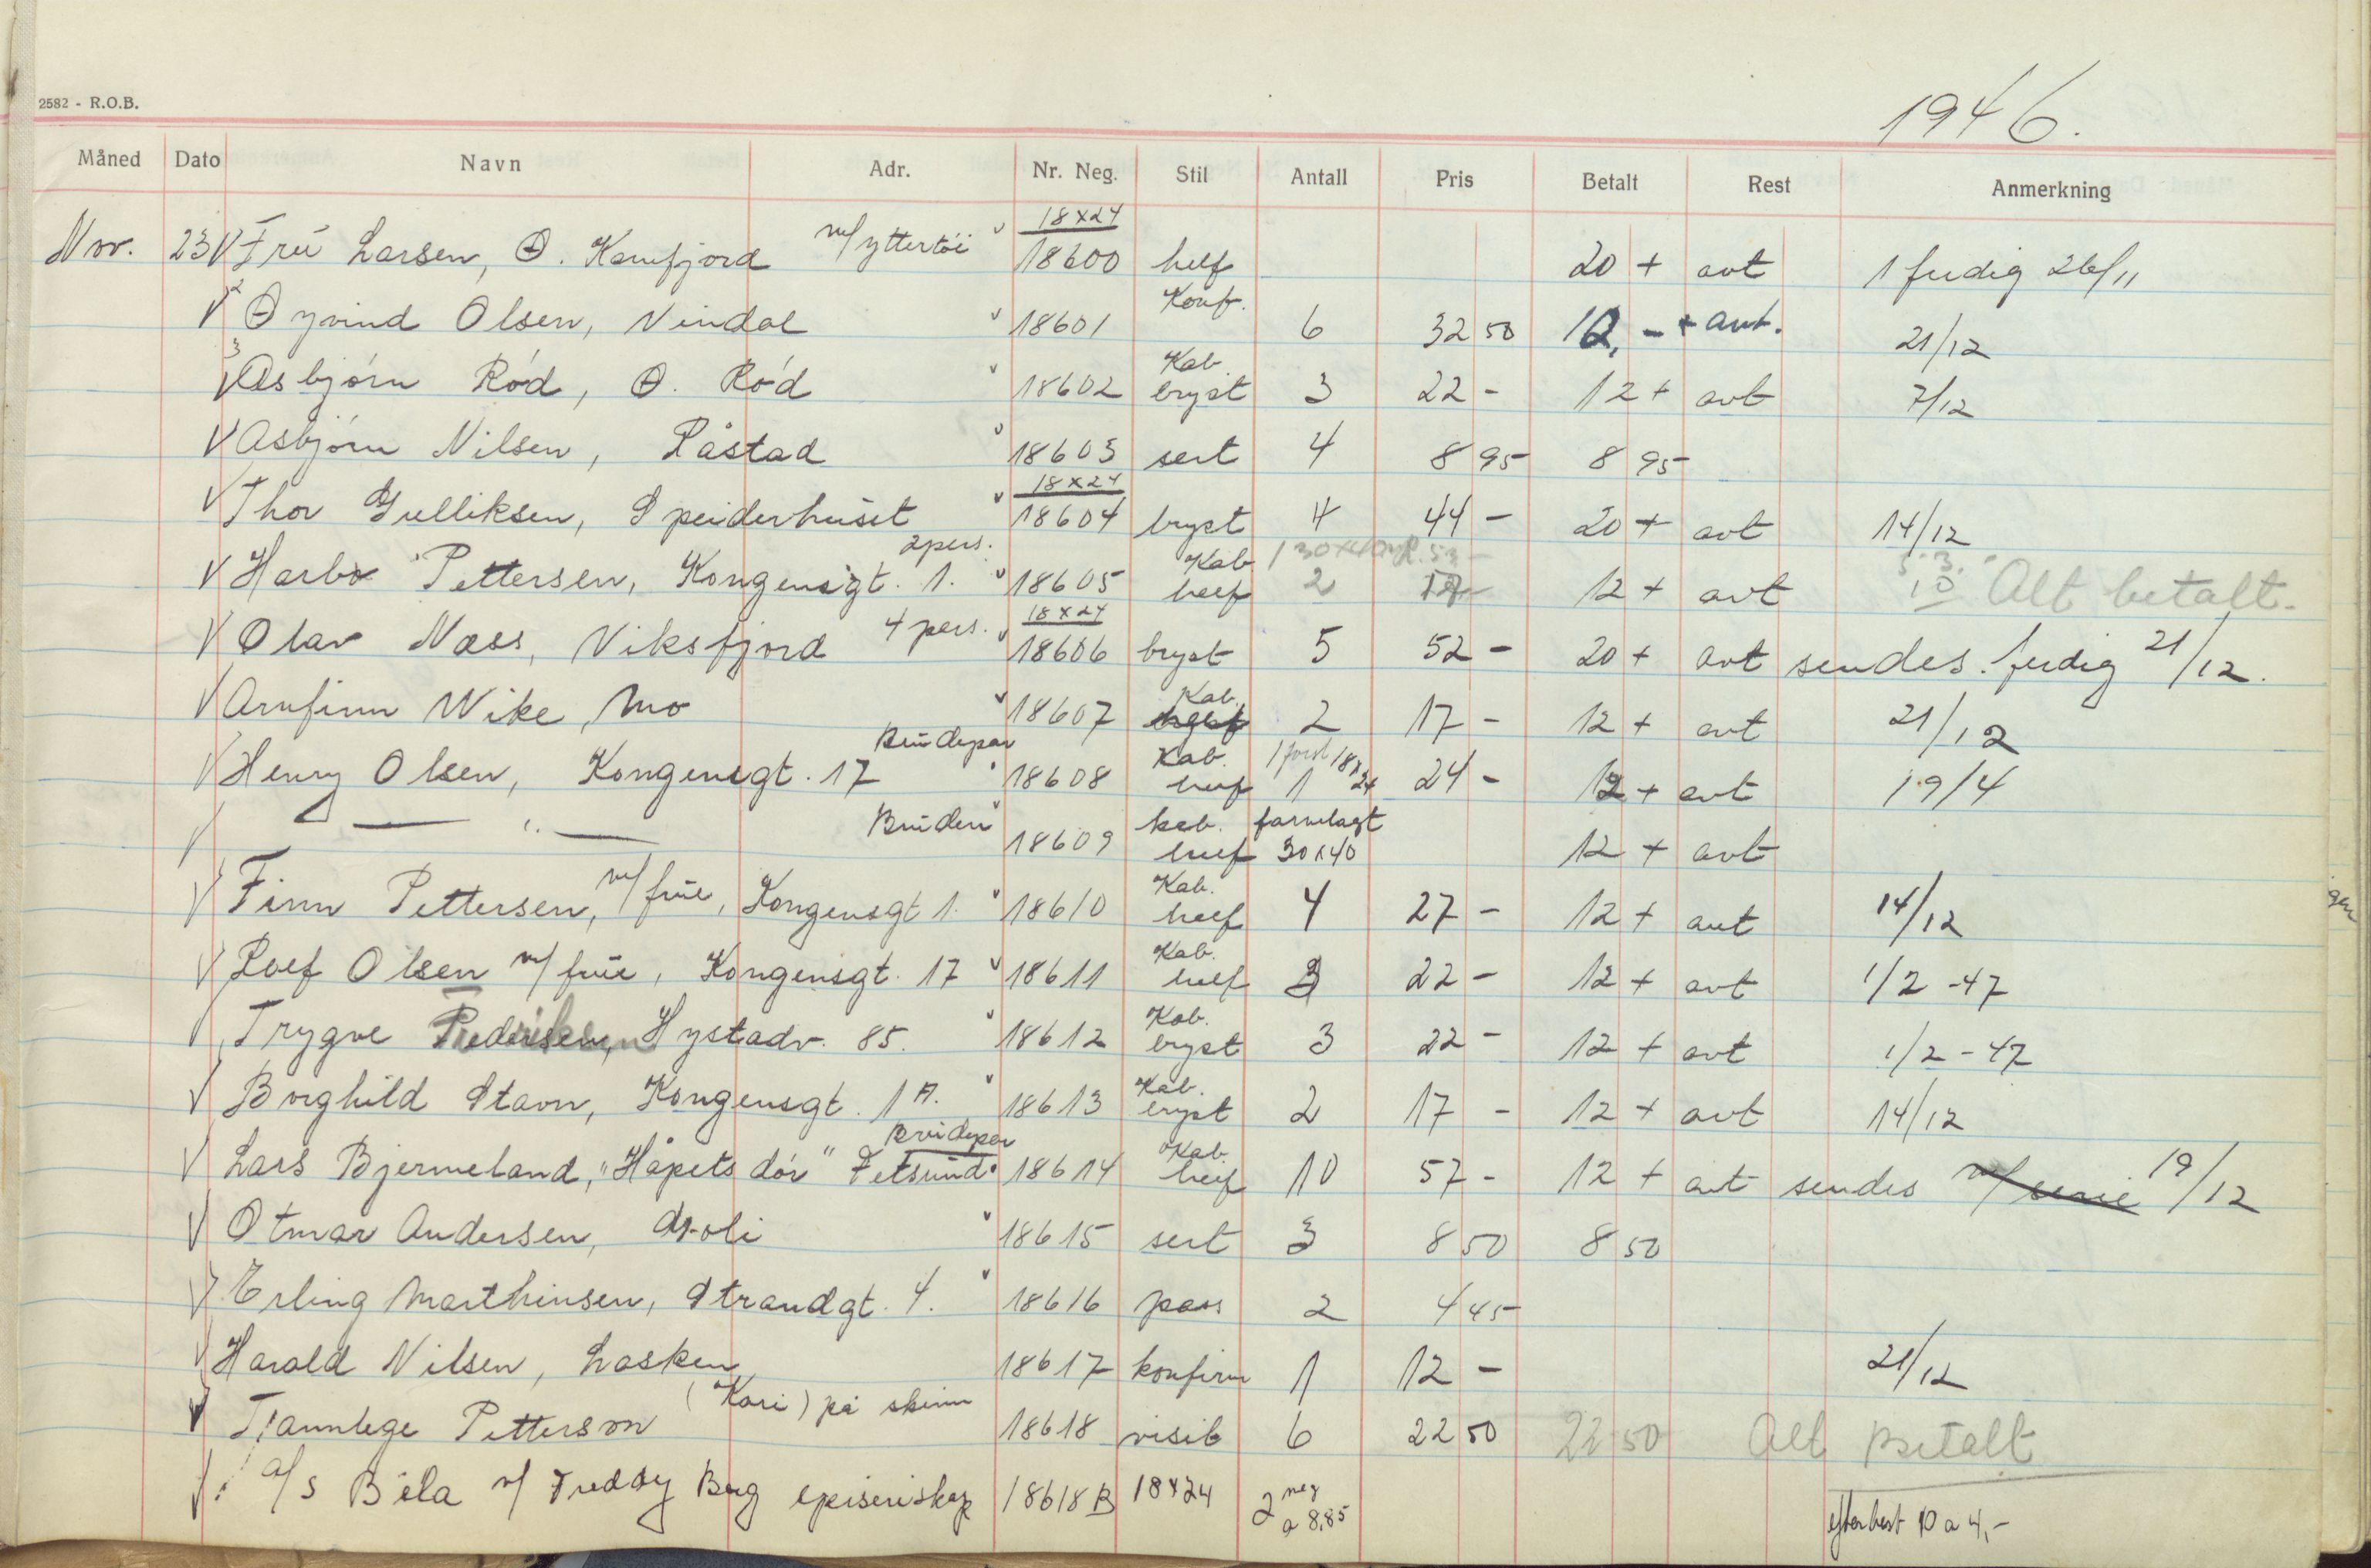 2582 - R.O.B.
1946.
Måned Dato Navn Adr. Nr. Neg. Stil Antall Pris Betalt Rest Anmerkning
18x24
Nov. 23 V Frú Larsen, Ø. Kamfjord m/yttertöi 18600 helf 20 + avt 1 ferdig 26/11
Konf.
V Øyvind Olsen, Vindal 18601 6 32 50 12,- + avt. 21/12
Kab.
V Asbjörn Röd, Ø. Röd 18602 bryst 3 22 - 12 + avt 7/12
V Asbjörn Nilsen, Råstad 18603 sert 4 8 95 8 95
18x24
V Thor Gulliksen, Speiderhuset 18604 bryst 4 44 - 20 + avt 14/12
2 pers. Kab 1 30x40
V Pettersen, Kongensgt. 1. 18605 helf 2 17 - 12 + avt 10 Alt betalt.
18x24
V Olav Næss, Viksfjord 4 pers. 18606 bryst 5 52 - 20 + avt sendes. ferdig 21/12.
Kab.
V Arnfinn Wike, Mo 18607 2 17 - 12 + avt 21/12
Brudepar Kab. 1 18x24
V Henry Olsen, Kongensgt. 17 18608 helf 1 24 - 12 + avt 19/4
Bruden kab. farvelagt
V — " — 18609 helf 30x40 12 + avt
Kab.
V Finn Pettersen, m/frue, Kongensgt 1. 18610 helf 4 27 - 12 + avt 14/12
Kab.
V Rolf Olsen m/frue, Kongensgt. 17 18611 helf 3 22 - 12 + avt 1/2 -47
Kab.
V Trygve Fredriksen, Hystadv. 85. 18612 bryst 3 22 - 12 + avt 1/2 - 47
Kab.
V Borghild Stavn, Kongensgt. 1 A. 18613 bryst 2 17 - 12 + avt 14/12
Brudepar Kab.
V Lars Bjermeland, "Håpets dör" Fetsund 18614 helf 10 57 - 12 + avt sendes 19/12
V Otmar Andersen, 18615 sert 3 8 50 8 50
V Erling Marthinsen, Strandgt. 4. 18616 pass 2 4 45
V Harald Nilsen, Lasken 18617 konfirm 1 12 - 21/12
V Tannlege Petterson (Kari) på skinn 18618 visit 6 22 50 22 50 Alt betalt
V A/s Bila v/ Freddy Berg 18618 B 18x24 2 neg a 8,85 efterbest 10 a 4,-